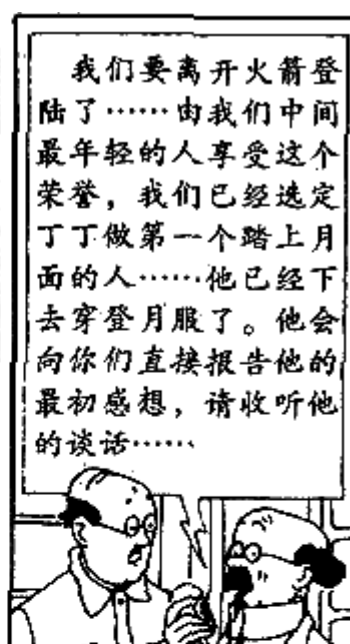 我们要离开火箭登
陆了……由我们中间
最年轻的人享受这个
荣誉，我们已经选定
丁丁做第一个踏上月
面的人……他已经下
去穿登月服了。他会
向你们直接报告他的
最初感想，请收听他
的谈话……